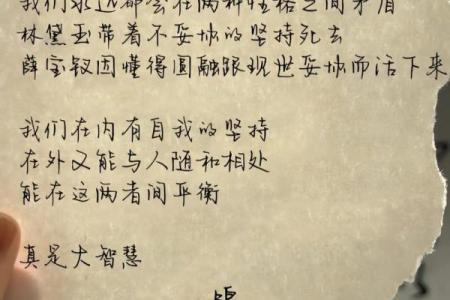 我们永远都会在两种性格之间矛盾
林黛玉带着不妥协的坚持死去
薛宝钗因懂得圆融跟现世妥协而活下来
我们在内有自我的坚持
在外又能与人随和相处
能在这两者间平衡
真是大智慧